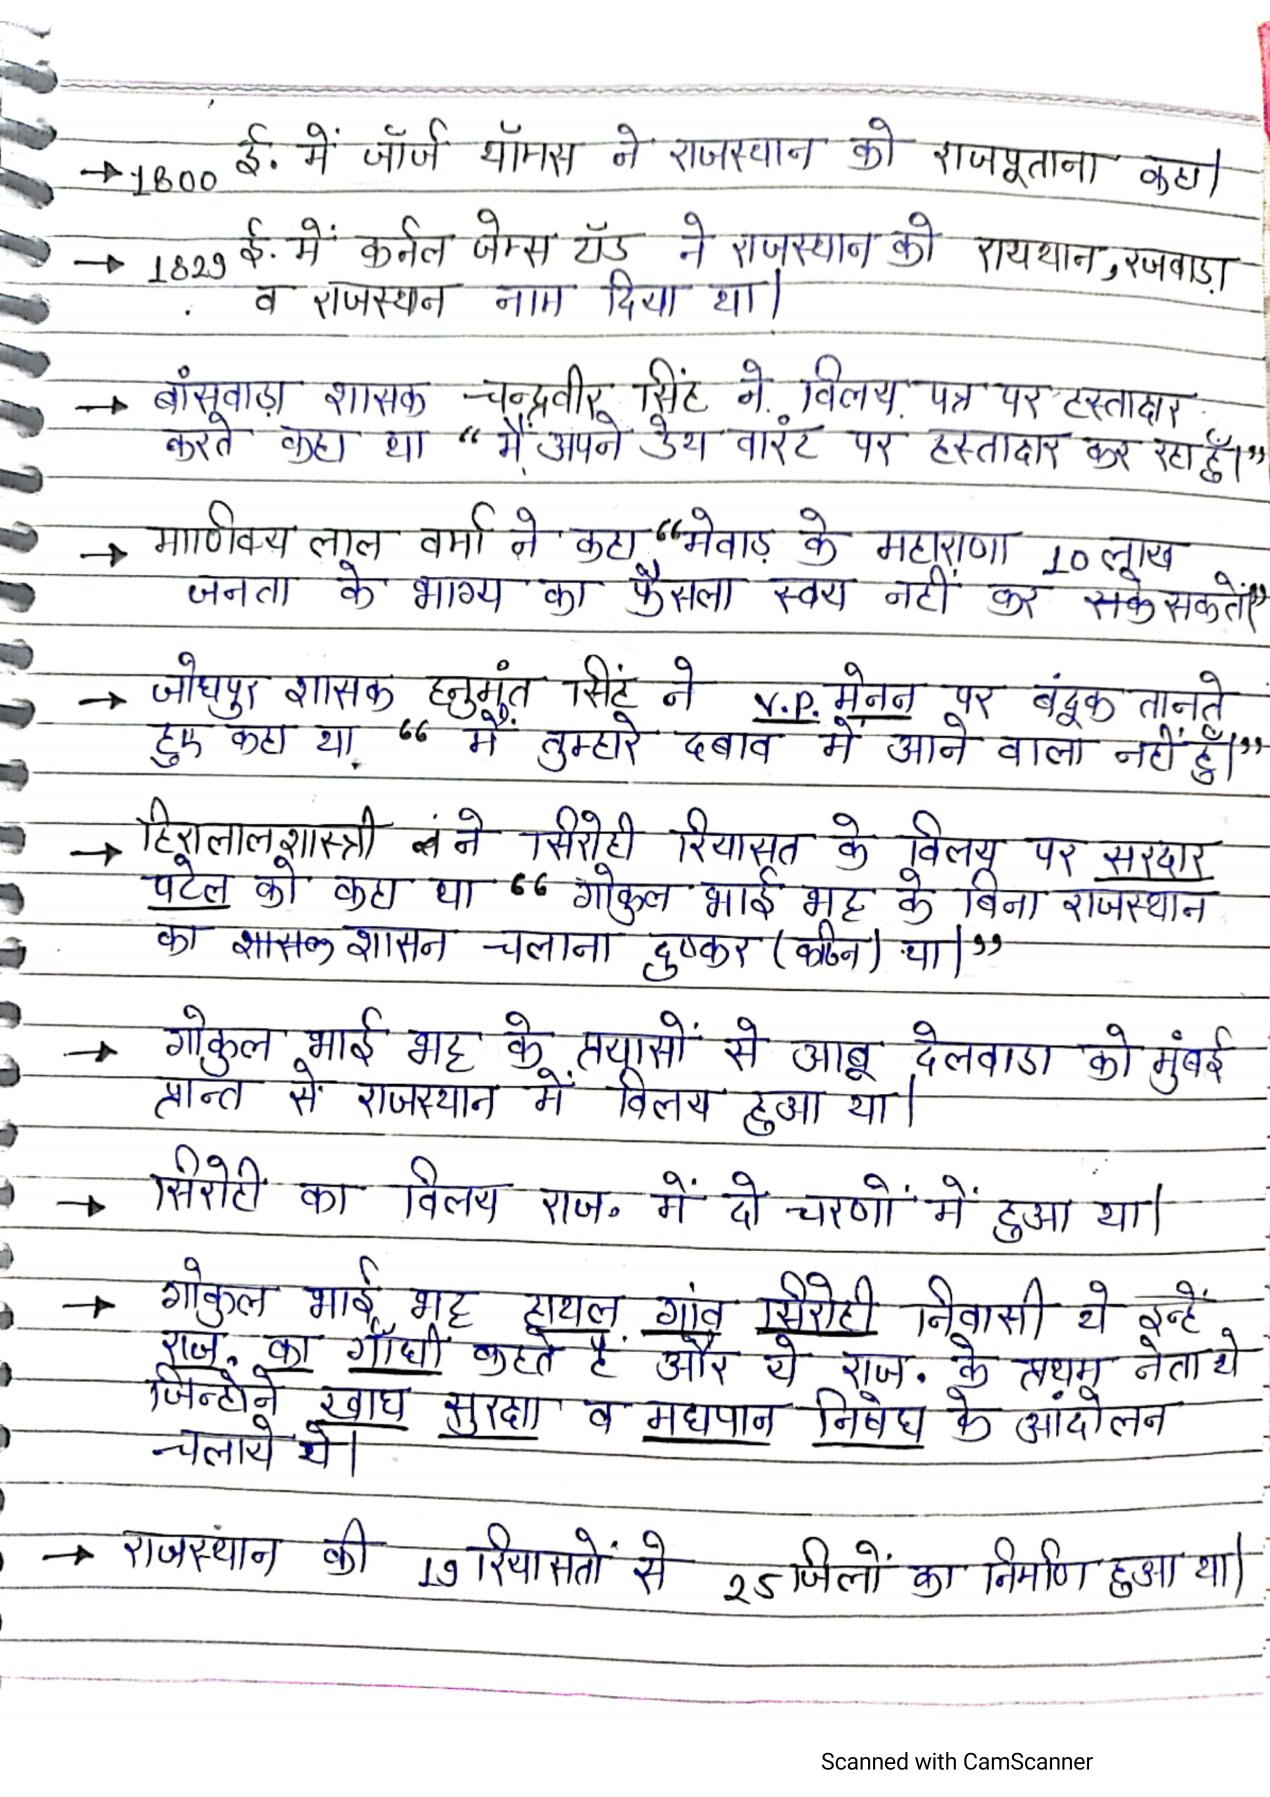 → 1800 ई. में जॉर्ज थॉमस ने राजस्थान को राजपूताना कहा।
→ 1829 ई. में कर्नल जेम्स टॉड ने राजस्थान को रायथान, रजवाड़ा
व राजस्थान नाम दिया था।
→ बांसवाड़ा शासक चन्द्रवीर सिंह ने विलय पत्र पर हस्ताक्षर
करते कहा था “मैं अपने डेथ वारंट पर हस्ताक्षर कर रहा हूँ।”
→ माणिक्य लाल वर्मा ने कहा “मेवाड़ के महाराणा 10 लाख
जनता के भाग्य का फैसला स्वय नहीं कर सके सकते।”
→ जोधपुर शासक हनुमंत सिंह ने V.P. मेनन पर बंदूक तानते
हुए कहा था “ मैं तुम्हारे दबाव में आने वाला नहीं हूँ।”
→ हिरालाल शास्त्री ने सिरोही रियासत के विलय पर सरदार
पटेल को कहा था “ गोकुल भाई भट्ट के बिना राजस्थान
का शासक शासन चलाना दुष्कर (कठिन) था।”
→ गोकुल भाई भट्ट के प्रयासों से आबू देलवाडा को मुंबई
प्रान्त से राजस्थान में विलय हुआ था।
→ सिरोही का विलय राज. में दो चरणों में हुआ था।
→ गोकुल भाई भट्ट हाथल गांव सिरोही निवासी थे इन्हें
राज. का गाँधी कहते है और ये राज. के प्रथम नेता थे
जिन्होने खाद्य सुरक्षा व मद्यपान निषेध के आंदोलन
चलाये थे।
→ राजस्थान की 19 रियासतों से 25 जिलों का निर्माण हुआ था।
Scanned with CamScanner